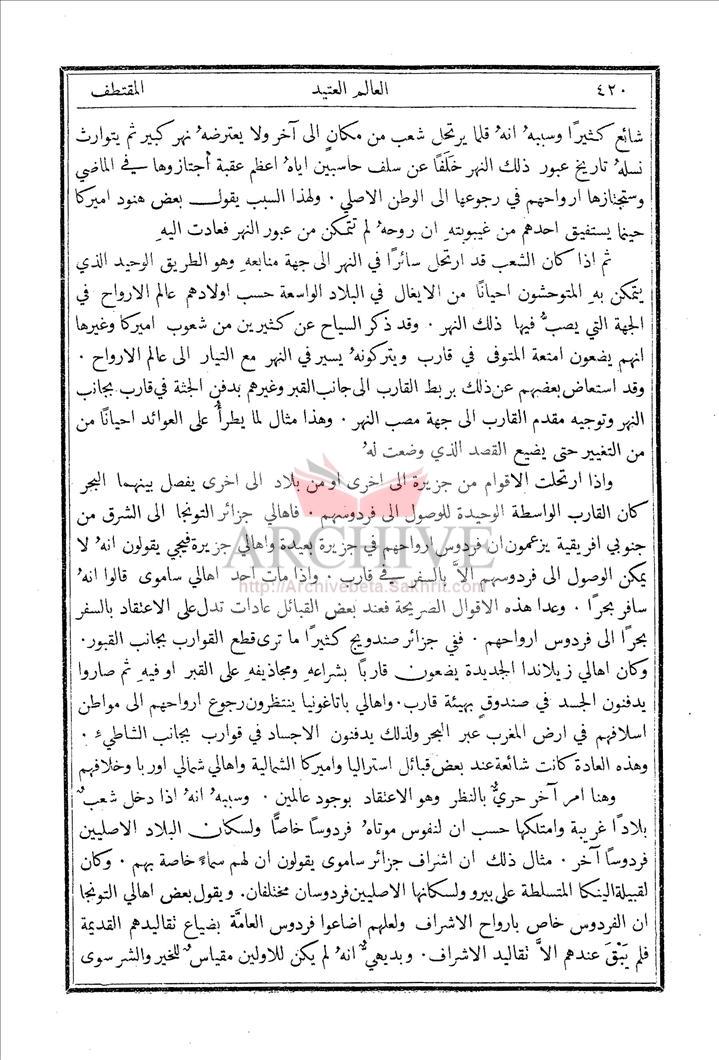 ٤٢٠ العالم العتيد المقتطف
شائع كثيرًا وسببهُ انهُ قلما يرتحل شعب من مكانٍ الى آخر ولا يعترضهُ نهر كبير ثم يتوارث
نسلهُ تاريخ عبور ذلك النهر خَلَفًا عن سلف حاسبين اياهُ اعظم عقبة أجتازوها في الماضي
وستجتازها ارواحهم في رجوعها الى الوطن الاصلي ٠ ولهذا السبب يقول بعض هنود اميركا
حينما يستفيق احدهم من غيبوبتهِ ان روحهُ لم تتمكن من عبور النهر فعادت اليهِ
ثم اذا كان الشعب قد ارتحل سائرًا في النهر الى جهة منابعهِ وهو الطريق الوحيد الذي
يتمكن بهِ المتوحشون احيانًا من الايغال في البلاد الواسعة حسب اولادهم عالم الارواح في
الجهة التي يصبُّ فيها ذلك النهر ٠ وقد ذكر السياح عن كثيرين من شعوب اميركا وغيرها
انهم يضعون امتعة المتوفى في قارب ويتركونهُ يسير في النهر مع التيار الى عالم الارواح ٠
وقد استعاض بعضهم عن ذلك بربط القارب الى جانب القبر وغيرهم بدفن الجثة في قارب بجانب
النهر وتوجيه مقدم القارب الى جهة مصب النهر ٠ وهذا مثال لما يطرأُ على العوائد احيانًا من
من التغيير حتى يضيع القصد الذي وضعت لهُ
واذا ارتحلت الاقوام من جزيرة الى اخرى او من بلاد الى اخرى يفصل بينهما البحر
كان القارب الواسطة الوحيدة للوصول الى فردوسهم ٠ فاهالي جزائر التونجا الى الشرق من
جنوبي افريقية يزعمون ان فردوس ارواحهم في جزيرة بعيدة واهالي جزيرة فيجي يقولون انهُ لا
يمكن الوصول الى فردوسهم الاَّ بالسفر في قارب ٠ واذا مات احد اهالي ساموى قالوا انهُ
سافر بحرًا ٠ وعدا هذه الاقوال الصريحة فعند بعض القبائل عادات تدل على الاعتقاد بالسفر
بحرًا الى فردوس ارواحهم ٠ ففي جزائر صندويج كثيرًا ما ترى قطع القوارب بجانب القبور.
وكان اهالي زيلاندا الجديدة يضعون قاربًا بشراعهِ ومجاذيفهِ على القبر او فيهِ ثم صاروا
يدفنون الجسد في صندوقٍ بهيئة قارب. واهالي باتاغونيا ينتظرون رجوع ارواحهم الى مواطن
اسلافهم في ارض المغرب عبر البحر ولذلك يدفنون الاجساد في قوارب بجانب الشاطئِ ٠
وهذه العادة كانت شائعة عند بعض قبائل استراليا واميركا الشمالية واهالي شمالي اوربا وخلافهم
وهنا امر آخر حريٌّ بالنظر وهو الاعتقاد بوجود عالمين ٠ وسببهُ انهُ اذا دخل شعبٌ
بلادًا غريبة وامتلكها حسب ان لنفوس موتاهُ فردوسًا خاصًّا ولسكان البلاد الاصليين
فردوسًا آخر ٠ مثال ذلك ان اشراف جزائر ساموى يقولون ان لهم سماءً خاصة بهم ٠ وكان
لقبيلة الينكا المتسلطة على بيرو ولسكانها الاصليين فردوسان مختلفان. ويقول بعض اهالي التونجا
ان الفردوس خاص بارواح الاشراف ولعلهم اضاعوا فردوس العامَّة بضياع تقاليدهم القديمة
فلم يَبْقَ عندهم الاَّ تقاليد الاشراف. وبديهيٌّ انهُ لم يكن للاولين مقياسٌ للخير والشر سوى
ARCHIVE
http://Archivebeta.Sakhrit.com